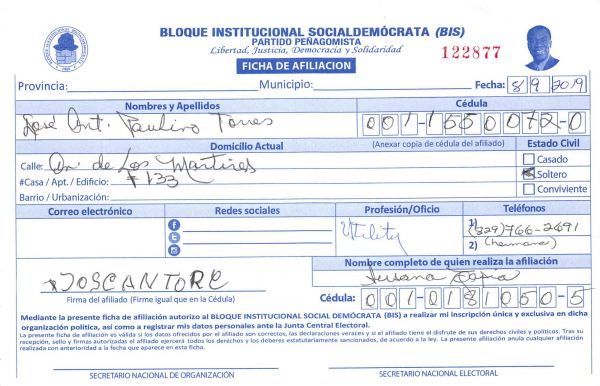 BLOQUE INSTITUCIONAL SOCIALDEMÓCRATA (BIS)
PARTIDO PEÑAGOMISTA
Libertad, Justicia, Democracia y Solidaridad
FICHA DE AFILIACION
122877
Provincia: Municipio: Fecha: 8/9/2019
Nombres y Apellidos Cédula
José Ant. Paulino Torres 001-1550072-0
Domicilio Actual (Anexar copia de cédula del afiliado) Estado Civil
Calle: Av. de Los Martires
Casado
#Casa / Apt. / Edificio: #133
Soltero
Barrio / Urbanización:
Conviviente
Correo electrónico Redes sociales Profesión/Oficio Teléfonos
Utility
1) (829)766-2691
2) (hermana)
Nombre completo de quien realiza la afiliación
JOSCANTORE
Firma del afiliado (Firme igual que en la Cédula)
Cédula: 001-0181050-5
Mediante la presente ficha de afiliación autorizo al BLOQUE INSTITUCIONAL SOCIAL DEMÓCRATA (BIS) a realizar mi inscripción única y exclusiva en dicha
organización política, así como a registrar mis datos personales ante la Junta Central Electoral.
La presente ficha de afiliación es válida si los datos ofrecidos por el afiliado son correctos, las declaraciones veraces y si el afiliado tiene el disfrute de sus derechos civiles y políticos. Tras su
recepción, sello y firmas autorizadas el afiliado ejercerá todos los derechos y deberes estatutariamente sancionados, de acuerdo a la ley. La presente afiliación anula cualquier afiliación
realizada con anterioridad a la fecha que aparece en esta ficha.
SECRETARIO NACIONAL DE ORGANIZACIÓN SECRETARIO NACIONAL ELECTORAL